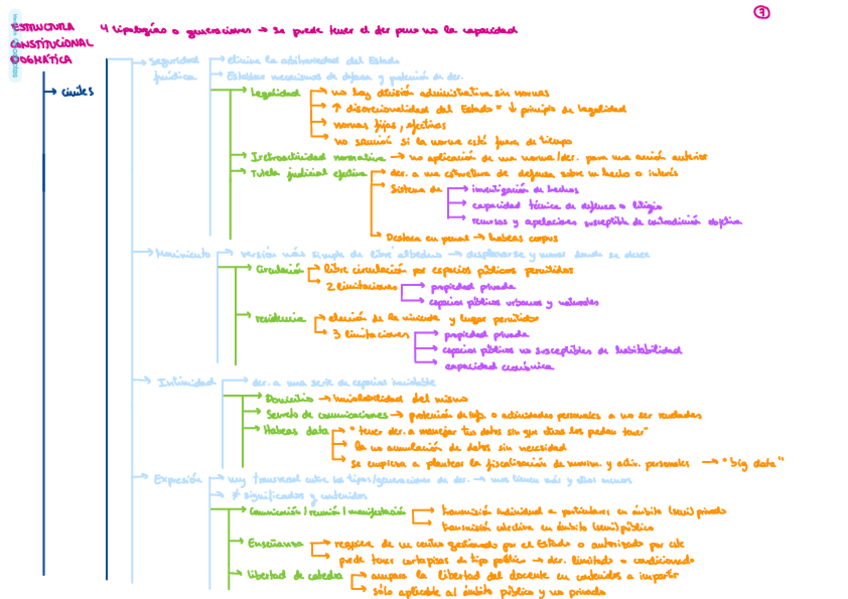 7
ESTRUCTURA 4 tipologías o generaciones → se puede tener el der pero no la capacidad
CONSTITUCIONAL
DOGMÁTICA
→ civiles
→ Seguridad jurídica
→ elimina la arbitrariedad del Estado
→ Establece mecanismos de defensa y protección de der.
→ Legalidad
→ no hay decisión administrativa sin normas
→ ↑ discrecionalidad del Estado = ↓ principio de legalidad
→ normas fijas, efectivas
→ no sanción si la norma está fuera de tiempo
→ Irretroactividad normativa → no aplicación de una norma/der. para una acción anterior
→ Tutela judicial efectiva → der. a una estructura de defensa sobre un hecho o interés
→ Sistema de
→ investigación de hechos
→ capacidad técnica de defensa o litigio
→ recursos y apelaciones susceptible de contradicción objetiva
→ Destaca en penal → habeas corpus
→ Movimiento → versión más simple de libre albedrío → desplazarse y morar donde se desee
→ Circulación → libre circulación por espacios públicos permitidos
→ 2 limitaciones
→ propiedad privada
→ espacios públicos urbanos y naturales
→ residencia → elección de la vivienda y lugar permitido
→ 3 limitaciones
→ propiedad privada
→ espacios públicos no susceptibles de habitabilidad
→ capacidad económica
→ Intimidad → der. a una serie de espacios inviolable
→ Domicilio → inviolabilidad del mismo
→ Secreto de comunicaciones → protección de info. o actividades personales a no ser reveladas
→ Habeas data → "tener der. a manejar tus datos sin que otros los puedan tener"
→ la no acumulación de datos sin necesidad
→ se empieza a plantear la fiscalización de y activ. personales → "big data"
→ Expresión → muy transversal entre los tipos/generaciones de der. → unos tienen más y otros menos
→ ≠ significados y contenidos
→ Comunicación / reunión / manifestación → transmisión individual a particulares, en ámbito (semi) privado
→ transmisión colectiva en ámbito (semi) público
→ Enseñanza → requiere de un centro gestionado por el Estado o autorizado por este
→ puede tener cortapisas de tipo político → der. limitado o condicionado
→ libertad de cátedra → ampara la libertad del docente en contenidos a impartir
→ sólo aplicable al ámbito público y no privado